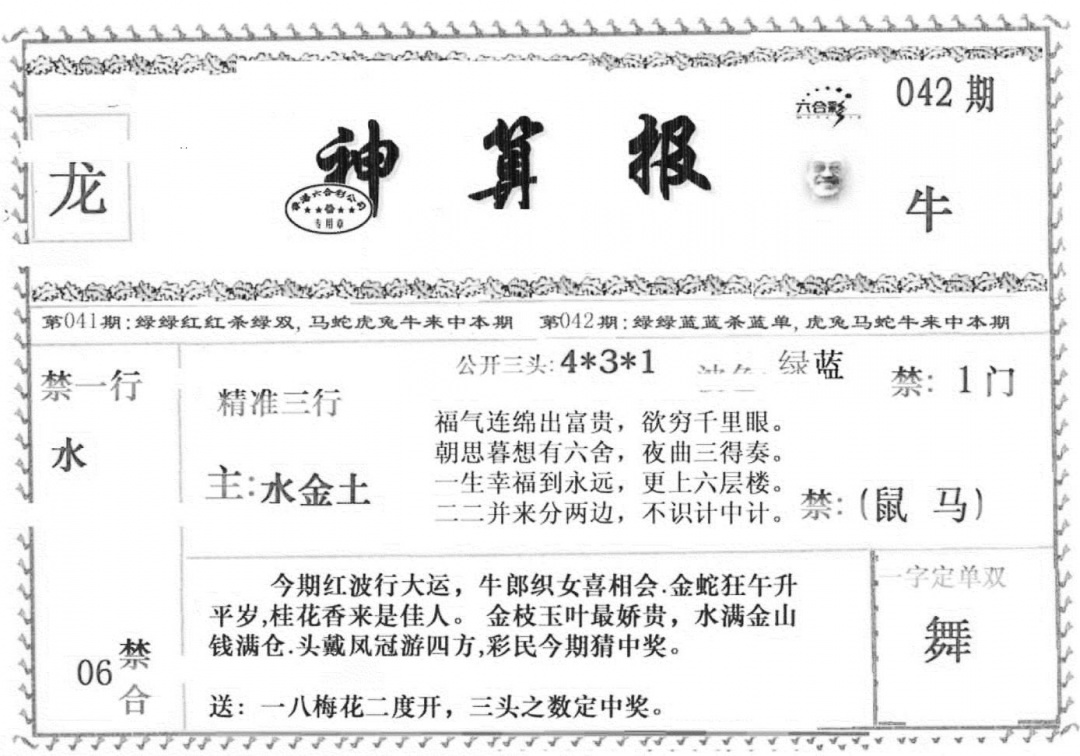 六合彩
042期
龙
神算报
香港六合彩公司
专用章
牛
第041期:绿绿红红杀绿双,马蛇虎兔牛来中本期 第042期:绿绿蓝蓝杀蓝单,虎兔马蛇牛来中本期
禁一行
水
公开三头:4*3*1
绿蓝
禁:1门
精准三行
主:水金土
福气连绵出富贵，欲穷千里眼。
朝思暮想有六舍，夜曲三得奏。
一生幸福到永远，更上六层楼。
二二并来分两边，不识计中计。
禁:(鼠 马)
今期红波行大运，牛郎织女喜相会.金蛇狂午升
平岁,桂花香来是佳人。金枝玉叶最娇贵，水满金山
钱满仓.头戴凤冠游四方,彩民今期猜中奖。
送：一八梅花二度开，三头之数定中奖。
06
禁
合
一字定单双
舞